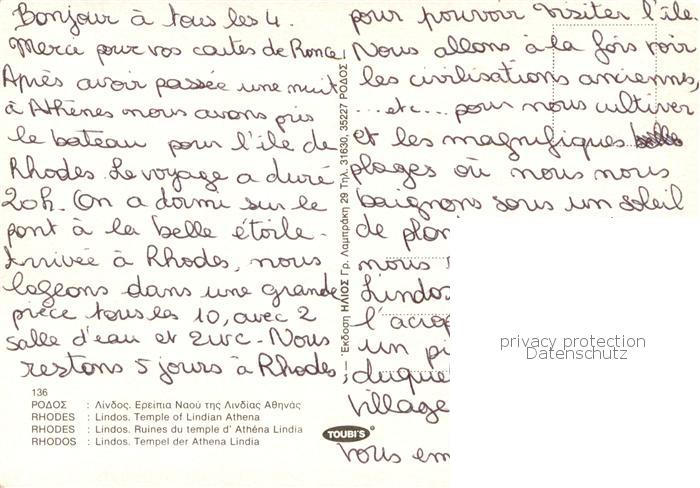 Bonjour à tous les 4.
Merci pour vos cartes de Rome,
Après avoir passée une nuit
à Athènes nous avons pris
le bateau pour l'ile de
Rhodes. Le voyage a duré
20h. On a dormi sur le
pont à la belle étoile.
Arrivée à Rhodes, nous
logeons dans une grande
pièce tous les 10, avec 2
salle d'eau et 2 WC. Nous
restons 5 jours à Rhodes
136
ΡΟΔΟΣ : Λίνδος. Ερείπια Ναού της Λινδίας Αθηνάς
RHODES : Lindos. Temple of Lindian Athena
RHODES : Lindos. Ruines du temple d' Athéna Lindia
RHODOS : Lindos. Tempel der Athena Lindia
Έκδοση ΗΛΙΟΣ Γρ. Λαμπράκη 29 Τηλ. 31630, 35227 ΡΟΔΟΣ
TOUBI'S
pour pouvoir visiter l'île
Nous allons à la fois voir
les civilisations anciennes,
...etc... pour nous cultiver
et les magnifiques
plages où nous nous
baignons sous un soleil
de
nous
Lindos
l'
un
duque
village
vous em
privacy protection
Datenschutz